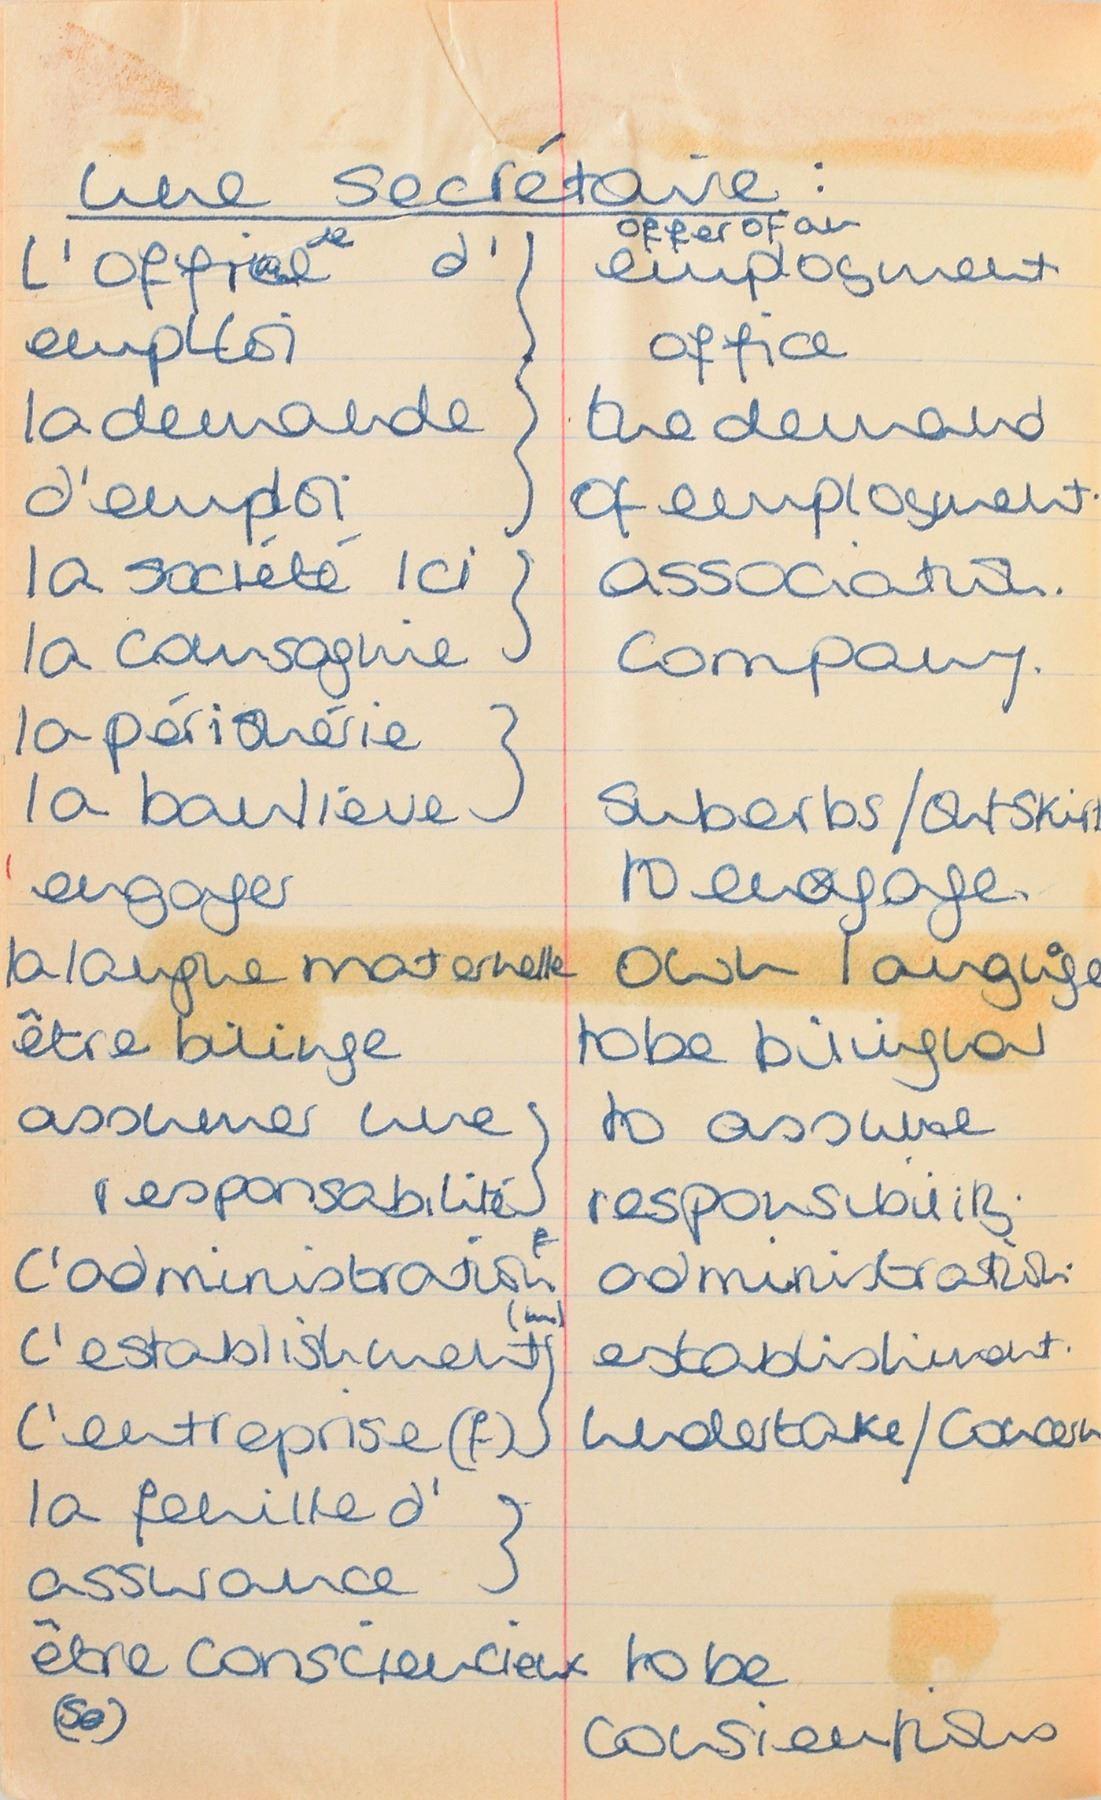 une secrétaire :
offer of an
L'offre d' employment
emploi office
la demande the demand
d'emploi of employment.
la société Ici association.
la compagnie company.
la périphérie
la banlieue suberbs/outskirt
engager to engage.
la langue maternelle own language
être bilinge to be bilingual
assumer une to assume
responsabilité responsibility.
f
L'administration administration.
(m)
L'establishment establishment.
L'entreprise (f) undertake/Concern
la feuille d'
assurance
être consciencieux to be
(se) consientious